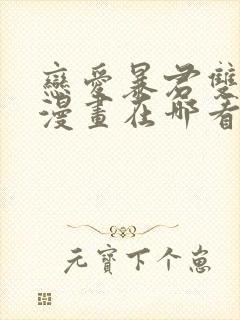 戀愛暴君雙
漫畫在哪看
元寶下个崽